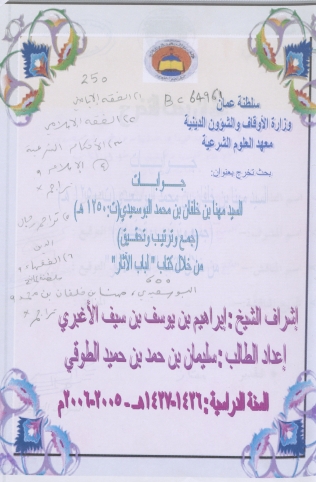 250
BC 6496
سلطنة عمان
وزارة الأوقاف والشؤون الدينية
معهد العلوم الشرعية
بحث تخرج بعنوان:
جوابات
السيد مهنا بن خلفان بن محمد البوسعيدي(ت:١٢٥٠هـ)
(جمع وترتيب وتحقيق)
من خلال كتاب "لباب الآثار"
إشراف الشيخ : إبراهيم بن يوسف بن سيف الأغبري
إعداد الطالب : سليمان بن حمد بن حميد الطوقي
السنة الدراسية : ١٤٢٦-١٤٢٧هـ - ٢٠٠٥-٢٠٠٦م